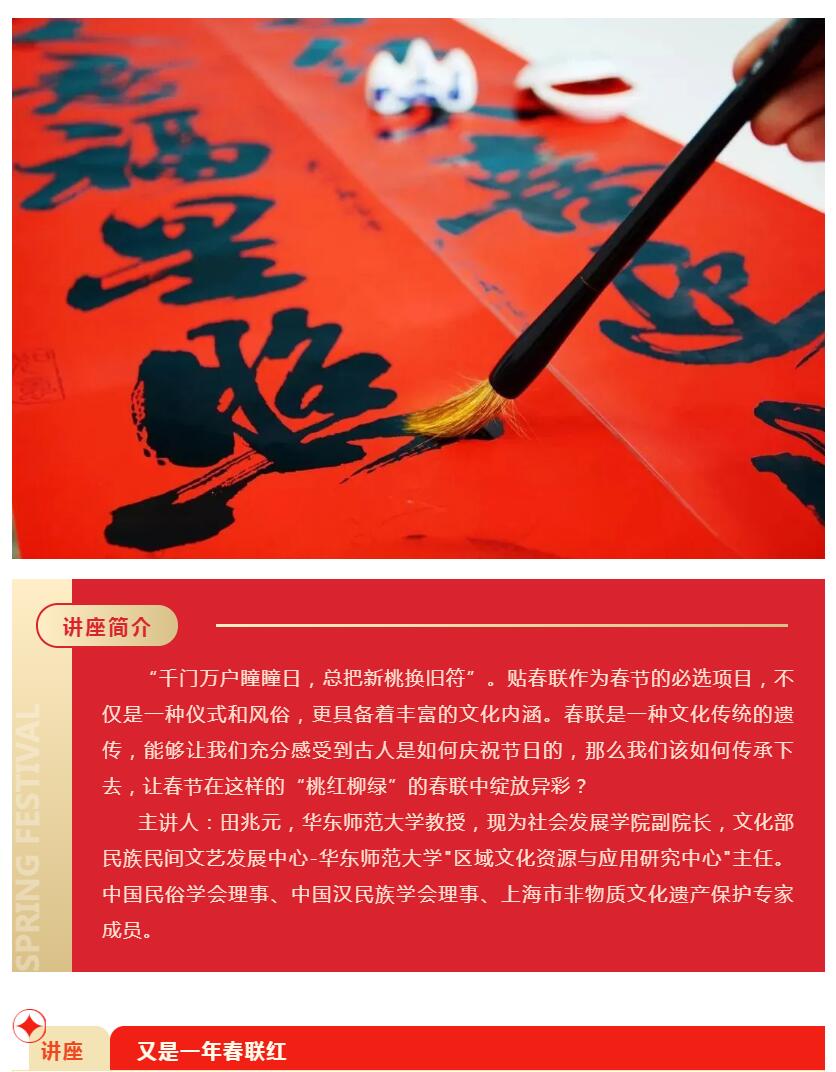 福星照
讲座简介
“千门万户瞳瞳日，总把新桃换旧符”。贴春联作为春节的必选项目，不
仅是一种仪式和风俗，更具备着丰富的文化内涵。春联是一种文化传统的遗
传，能够让我们充分感受到古人是如何庆祝节日的，那么我们该如何传承下
去，让春节在这样的“桃红柳绿”的春联中绽放异彩？
主讲人：田兆元，华东师范大学教授，现为社会发展学院副院长，文化部
民族民间文艺发展中心-华东师范大学"区域文化资源与应用研究中心"主任。
中国民俗学会理事、中国汉民族学会理事、上海市非物质文化遗产保护专家
成员。
SPRING FESTIVAL
讲座
又是一年春联红